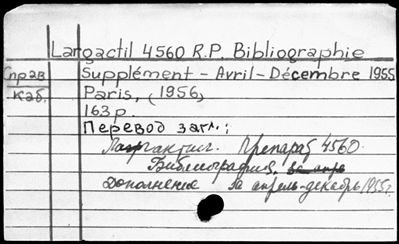 Largactil 4560 R.P. Bibliographie
Справ. Supplément - Avril - Décembre 1955.
каб. Paris, (1956)
163 p.
Перевод загл.:
Ларгактил. Препарат 4560.
Библиография. за апр
Дополнение за апрель-декабрь 1955г.